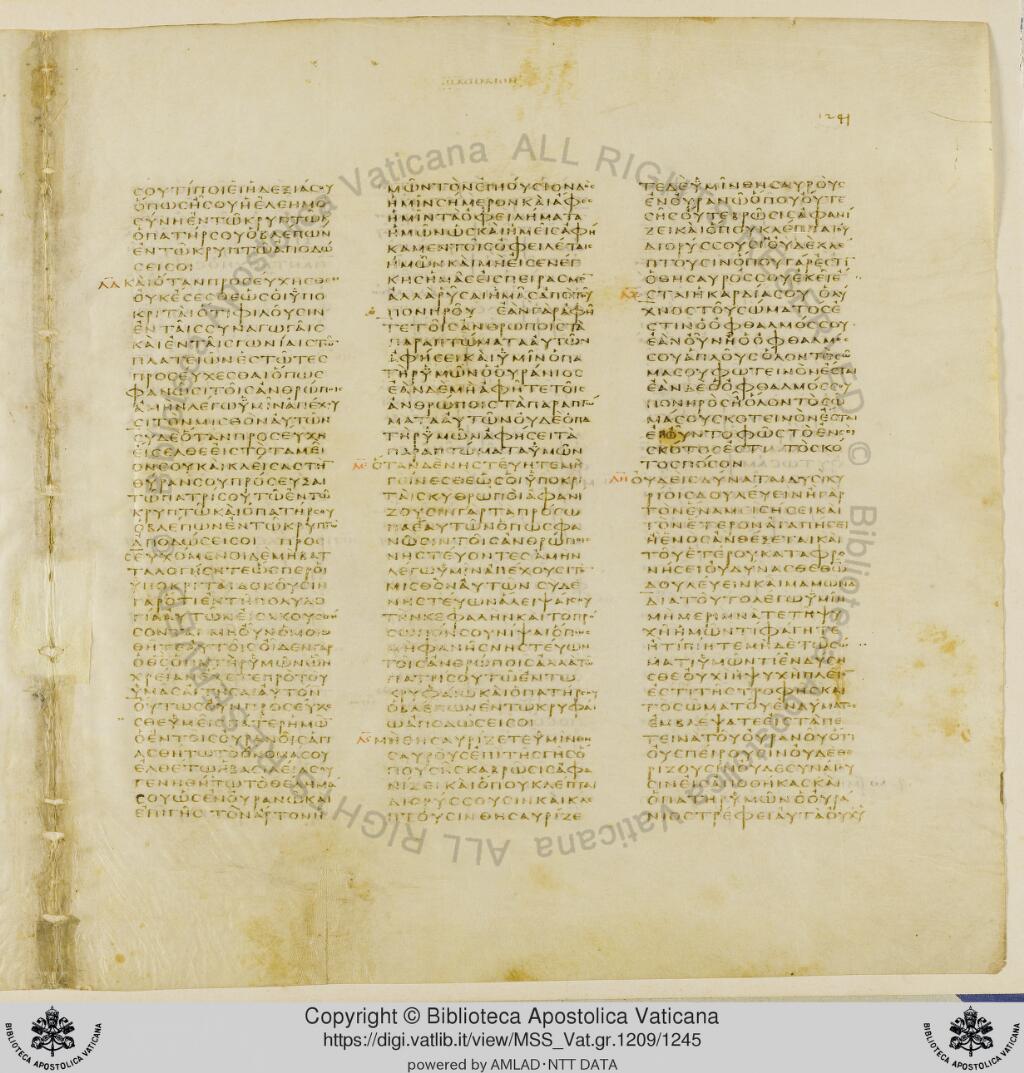 ΜΑΘΘΑΙΟΝ
1241
ΣΟΥΤΙΠΟΙΕΙΗΔΕΞΙΑΣΟΥ
ΟΠΩΣΗΣΟΥΗΕΛΕΗΜΟ
ΣΥΝΗΕΝΤΩΚΡΥΠΤΩΚ
ΟΠΑΤΗΡΣΟΥΟΒΛΕΠΩΝ
ΕΝΤΩΚΡΥΠΤΩΑΠΟΔΩ
ΣΕΙΣΟΙ
ΚΑΙΟΤΑΝΠΡΟΣΕΥΧΗΣΘΕ
ΟΥΚΕΣΕΣΘΕΩΣΟΙΥΠΟ
ΚΡΙΤΑΙΟΤΙΦΙΛΟΥΣΙΝ
ΕΝΤΑΙΣΣΥΝΑΓΩΓΑΙΣ
ΚΑΙΕΝΤΑΙΣΓΩΝΙΑΙΣΤΩ
ΠΛΑΤΕΙΩΝΕΣΤΩΤΕΣ
ΠΡΟΣΕΥΧΕΣΘΑΙΟΠΩΣ
ΦΑΝΩΣΙΤΟΙΣΑΝΘΡΩΠΟΙΣ
ΑΜΗΝΛΕΓΩΥΜΙΝΑΠΕΧΟΥ
ΣΙΤΟΝΜΙΣΘΟΝΑΥΤΩΝ
ΣΥΔΕΟΤΑΝΠΡΟΣΕΥΧΗ
ΕΙΣΕΛΘΕΕΙΣΤΟΤΑΜΕΙ
ΟΝΣΟΥΚΑΙΚΛΕΙΣΑΣΤΗ
ΘΥΡΑΝΣΟΥΠΡΟΣΕΥΞΑΙ
ΤΩΠΑΤΡΙΣΟΥΤΩΕΝΤΩ
ΚΡΥΠΤΩΚΑΙΟΠΑΤΗΡΣΟΥ
ΟΒΛΕΠΩΝΕΝΤΩΚΡΥΠΤΩ
ΑΠΟΔΩΣΕΙΣΟΙ ΠΡΟΣ
ΕΥΧΟΜΕΝΟΙΔΕΜΗΒΑΤ
ΤΑΛΟΓΗΣΗΤΕΩΣΠΕΡΟΙ
ΥΠΟΚΡΙΤΑΙΔΟΚΟΥΣΙΝ
ΓΑΡΟΤΙΕΝΤΗΠΟΛΥΛΟ
ΓΙΑΑΥΤΩΝΕΙΣΑΚΟΥΣΘΗ
ΣΟΝΤΑΙΜΗΟΥΝΟΜΟΙΩ
ΘΗΤΕΑΥΤΟΙΣΟΙΔΕΝΓΑΡ
ΟΘΣΟΠΑΤΗΡΥΜΩΝΩΝ
ΧΡΕΙΑΝΕΧΕΤΕΠΡΟΤΟΥ
ΥΜΑΣΑΙΤΗΣΑΙΑΥΤΟΝ
ΟΥΤΩΣΟΥΝΠΡΟΣΕΥΧΕ
ΣΘΕΥΜΕΙΣΠΑΤΕΡΗΜΩ
ΟΕΝΤΟΙΣΟΥΡΑΝΟΙΣΑΓΙ
ΑΣΘΗΤΩΤΟΟΝΟΜΑΣΟΥ
ΕΛΘΕΤΩΗΒΑΣΙΛΕΙΑΣΟΥ
ΓΕΝΗΘΗΤΩΤΟΘΕΛΗΜΑ
ΣΟΥΩΣΕΝΟΥΡΑΝΩΚΑΙ
ΕΠΙΓΗΣ ΤΟΝΑΡΤΟΝΗ
ΜΩΝΤΟΝΕΠΙΟΥΣΙΟΝΔΟΣ
ΗΜΙΝΣΗΜΕΡΟΝΚΑΙΑΦΕΣ
ΗΜΙΝΤΑΟΦΕΙΛΗΜΑΤΑ
ΗΜΩΝΩΣΚΑΙΗΜΕΙΣΑΦΗ
ΚΑΜΕΝΤΟΙΣΟΦΕΙΛΕΤΑΙΣ
ΗΜΩΝΚΑΙΜΗΕΙΣΕΝΕΓ
ΚΗΣΗΜΑΣΕΙΣΠΕΙΡΑΣΜΟ
ΑΛΛΑΡΥΣΑΙΗΜΑΣΑΠΟΤΟΥ
ΠΟΝΗΡΟΥ ΕΑΝΓΑΡΑΦΗ
ΤΕΤΟΙΣΑΝΘΡΩΠΟΙΣΤΑ
ΠΑΡΑΠΤΩΜΑΤΑΑΥΤΩΝ
ΑΦΗΣΕΙΚΑΙΥΜΙΝΟΠΑ
ΤΗΡΥΜΩΝΟΟΥΡΑΝΙΟΣ
ΕΑΝΔΕΜΗΑΦΗΤΕΤΟΙΣ
ΑΝΘΡΩΠΟΙΣΤΑΠΑΡΑΠΤΩ
ΜΑΤΑΑΥΤΩΝΟΥΔΕΟΠΑ
ΤΗΡΥΜΩΝΑΦΗΣΕΙΤΑ
ΠΑΡΑΠΤΩΜΑΤΑΥΜΩΝ
ΟΤΑΝΔΕΝΗΣΤΕΥΗΤΕΜΗ
ΓΕΙΝΕΣΘΕΩΣΟΙΥΠΟΚΡΙ
ΤΑΙΣΚΥΘΡΩΠΟΙΑΦΑΝΙ
ΖΟΥΣΙΝΓΑΡΤΑΠΡΟΣΩ
ΠΑΕΑΥΤΩΝΟΠΩΣΦΑ
ΝΩΣΙΝΤΟΙΣΑΝΘΡΩΠΟΙΣ
ΝΗΣΤΕΥΟΝΤΕΣΑΜΗΝ
ΛΕΓΩΥΜΙΝΑΠΕΧΟΥΣΙΤΟ
ΜΙΣΘΟΝΑΥΤΩΝ ΣΥΔΕ
ΝΗΣΤΕΥΩΝΑΛΕΙΨΑΙΣΟΥ
ΤΗΝΚΕΦΑΛΗΝΚΑΙΤΟΠΡΟ
ΣΩΠΟΝΣΟΥΝΙΨΑΙΟΠΩΣ
ΜΗΦΑΝΗΣΝΗΣΤΕΥΩΝ
ΤΟΙΣΑΝΘΡΩΠΟΙΣΑΛΛΑΤΩ
ΠΑΤΡΙΣΟΥΤΩΕΝΤΩ
ΚΡΥΦΑΙΩΚΑΙΟΠΑΤΗΡΣΟΥ
ΟΒΛΕΠΩΝΕΝΤΩΚΡΥΦΑΙ
ΩΑΠΟΔΩΣΕΙΣΟΙ
ΜΗΘΗΣΑΥΡΙΖΕΤΕΥΜΙΝΘΗ
ΣΑΥΡΟΥΣΕΠΙΤΗΣΓΗΣΟ
ΠΟΥΣΗΣΚΑΙΒΡΩΣΙΣΑΦΑ
ΝΙΖΕΙΚΑΙΟΠΟΥΚΛΕΠΤΑΙ
ΔΙΟΡΥΣΣΟΥΣΙΝΚΑΙΚΛΕ
ΠΤΟΥΣΙΝΘΗΣΑΥΡΙΖΕ
ΤΕΔΕΥΜΙΝΘΗΣΑΥΡΟΥΣ
ΕΝΟΥΡΑΝΩΟΠΟΥΟΥΤΕ
ΣΗΣΟΥΤΕΒΡΩΣΙΣΑΦΑΝΙ
ΖΕΙΚΑΙΟΠΟΥΚΛΕΠΤΑΙΟΥ
ΔΙΟΡΥΣΣΟΥΣΙΟΥΔΕΚΛΕ
ΠΤΟΥΣΙΝΟΠΟΥΓΑΡΕΣΤΙ
ΟΘΗΣΑΥΡΟΣΣΟΥΕΚΕΙΕ
ΣΤΑΙΗΚΑΡΔΙΑΣΟΥ ΟΛΥ
ΧΝΟΣΤΟΥΣΩΜΑΤΟΣΕ
ΣΤΙΝΟΟΦΘΑΛΜΟΣΣΟΥ
ΕΑΝΟΥΝΗΟΟΦΘΑΛΜΟΣ
ΣΟΥΑΠΛΟΥΣΟΛΟΝΤΟΣΩ
ΜΑΣΟΥΦΩΤΕΙΝΟΝΕΣΤΑΙ
ΕΑΝΔΕΟΟΦΘΑΛΜΟΣΣΟΥ
ΠΟΝΗΡΟΣΗΟΛΟΝΤΟΣΩ
ΜΑΣΟΥΣΚΟΤΕΙΝΟΝΕΣΤΑΙ
ΕΙΟΥΝΤΟΦΩΣΤΟΕΝΣΟΙ
ΣΚΟΤΟΣΕΣΤΙ ΤΟΣΚΟ
ΤΟΣΠΟΣΟΝ
ΟΥΔΕΙΣΔΥΝΑΤΑΙΔΥΣΙΚΥ
ΡΙΟΙΣΔΟΥΛΕΥΕΙΝΗΓΑΡ
ΤΟΝΕΝΑΜΕΙΣΗΣΕΙΚΑΙ
ΤΟΝΕΤΕΡΟΝΑΓΑΠΗΣΕΙ
ΗΕΝΟΣΑΝΘΕΞΕΤΑΙΚΑΙ
ΤΟΥΕΤΕΡΟΥΚΑΤΑΦΡΟ
ΝΗΣΕΙΟΥΔΥΝΑΣΘΕΘΩ
ΔΟΥΛΕΥΕΙΝΚΑΙΜΑΜΩΝΑ
ΔΙΑΤΟΥΤΟΛΕΓΩΥΜΙΝ
ΜΗΜΕΡΙΜΝΑΤΕΤΗΨΥ
ΧΗΥΜΩΝΤΙΦΑΓΗΤΕ
ΗΤΙΠΙΗΤΕΜΗΔΕΤΩΣΩ
ΜΑΤΙΥΜΩΝΤΙΕΝΔΥΣΗ
ΣΘΕΟΥΧΙΗΨΥΧΗΠΛΕΙ
ΕΣΤΙΤΗΣΤΡΟΦΗΣΚΑΙ
ΤΟΣΩΜΑΤΟΥΕΝΔΥΜΑΤΟΣ
ΕΜΒΛΕΨΑΤΕΕΙΣΤΑΠΕ
ΤΕΙΝΑΤΟΥΟΥΡΑΝΟΥΟΤΙ
ΟΥΣΠΕΙΡΟΥΣΙΝΟΥΔΕΘΕ
ΡΙΖΟΥΣΙΝΟΥΔΕΣΥΝΑΓΟΥ
ΣΙΝΕΙΣΑΠΟΘΗΚΑΣΚΑΙ
ΟΠΑΤΗΡΥΜΩΝΟΟΥΡΑ
ΝΙΟΣΤΡΕΦΕΙΑΥΤΑΟΥΧΥ
Copyright © Biblioteca Apostolica Vaticana
https://digi.vatlib.it/view/MSS_Vat.gr.1209/1245
powered by AMLAD·NTT DATA